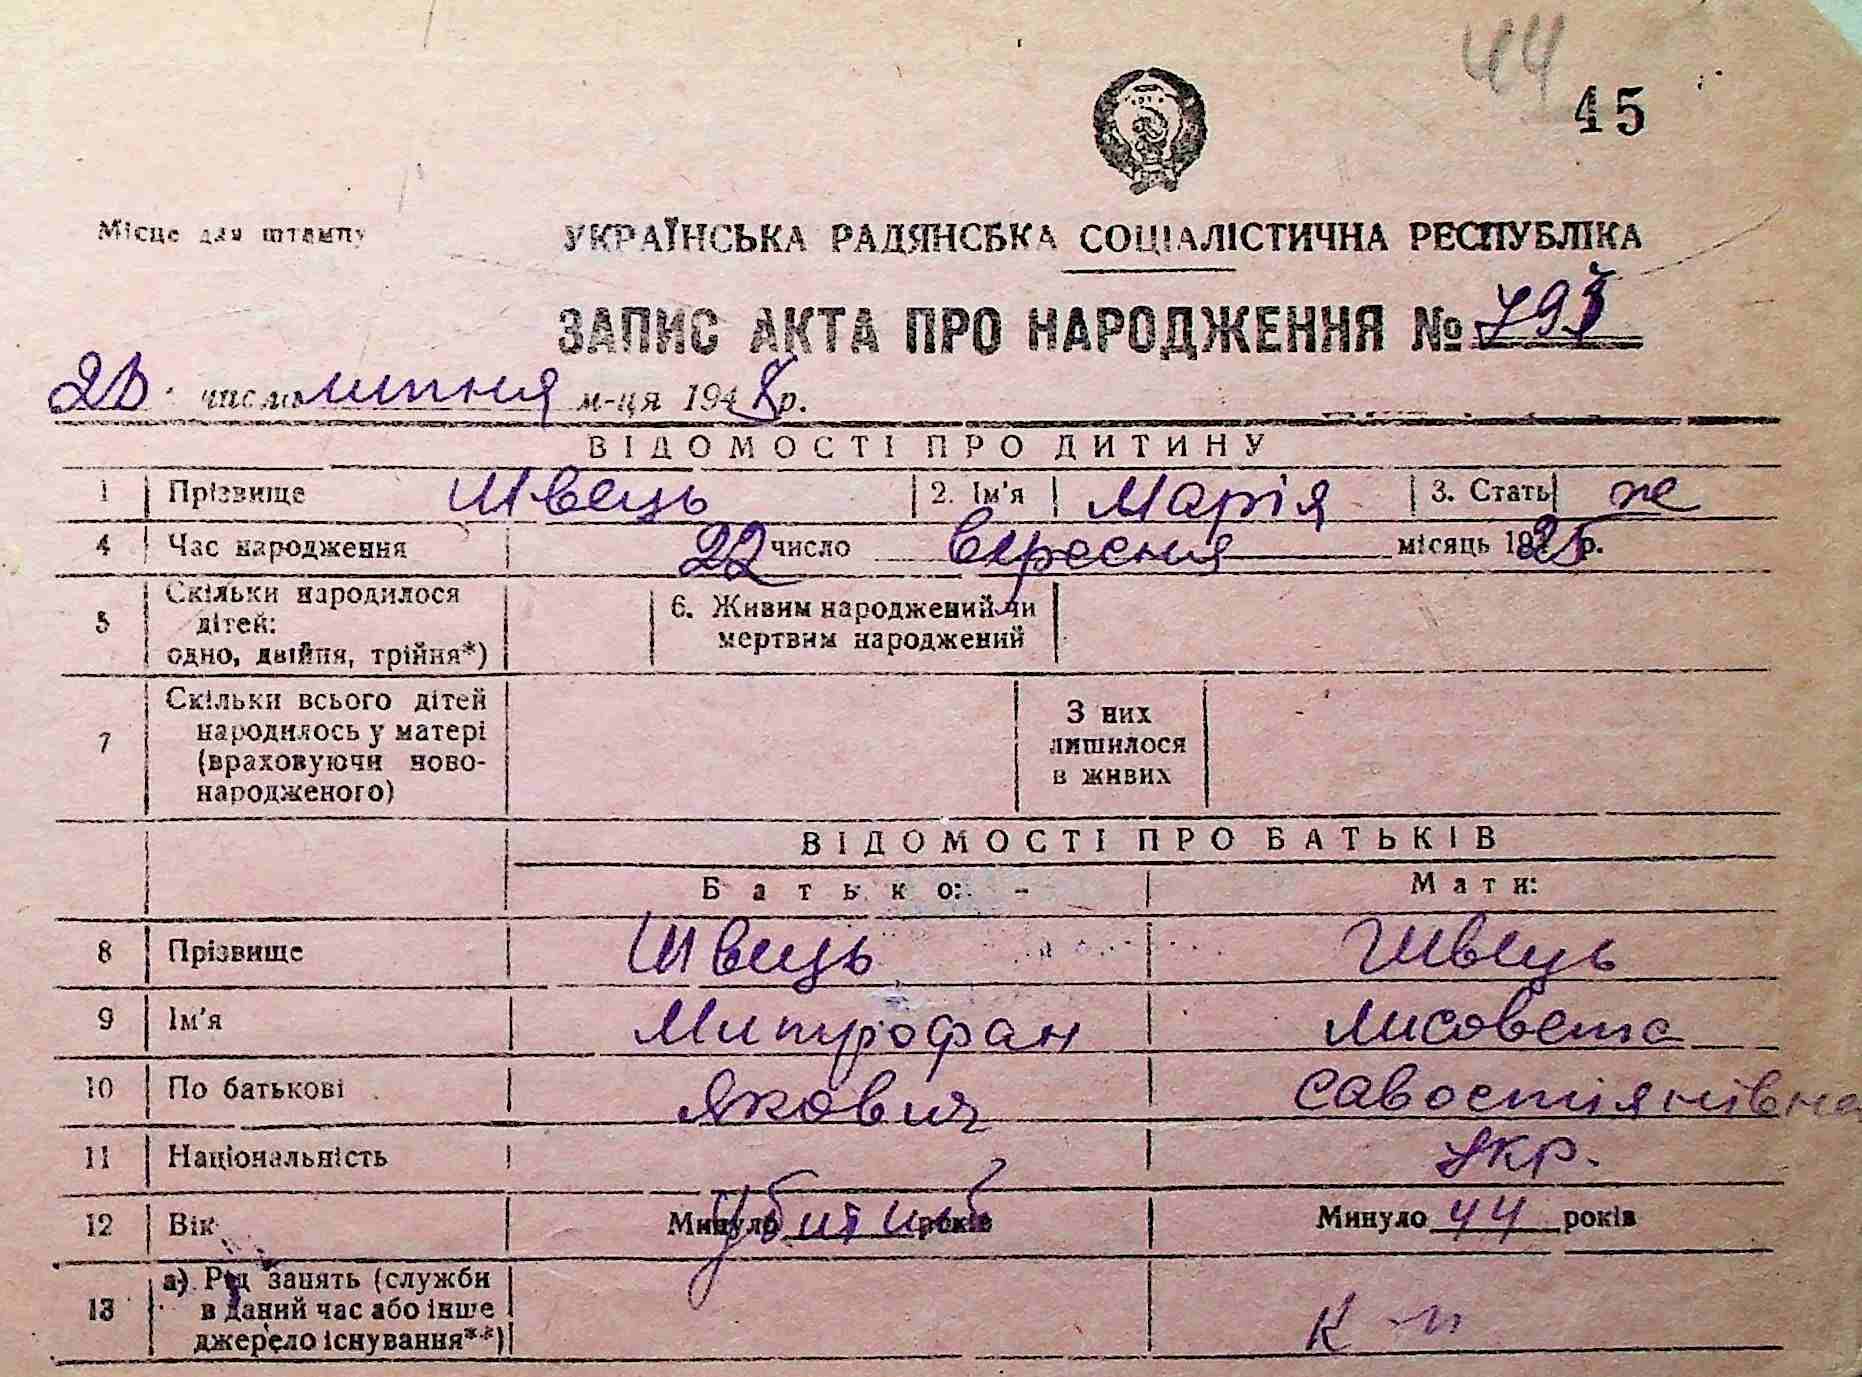 44
45
Місце для штампу
УКРАЇНСЬКА РАДЯНСЬКА СОЦІАЛІСТИЧНА РЕСПУБЛІКА
ЗАПИС АКТА ПРО НАРОДЖЕННЯ № 793
числа липня м-ця 1948 р.
ВІДОМОСТІ ПРО ДИТИНУ
1 Прізвище Швець 2. Ім'я Марія 3. Стать ж
4 Час народження 22 число вересня місяць 1925 р.
5 Скільки народилося дітей: одно, двійня, трійня*) 6. Живим народжений чи мертвим народжений
7 Скільки всього дітей народилось у матері (враховуючи ново-народженого) З них лишилося в живих
ВІДОМОСТІ ПРО БАТЬКІВ
Батько: - Мати:
8 Прізвище Швець Швець
9 Ім'я Митрофан Лисовета
10 По батькові Якович Савостіянівна
11 Національність укр.
12 Вік Минуло років Минуло 44 років
13 а) Рід занять (служби в даний час або інше джерело існування**) к-п